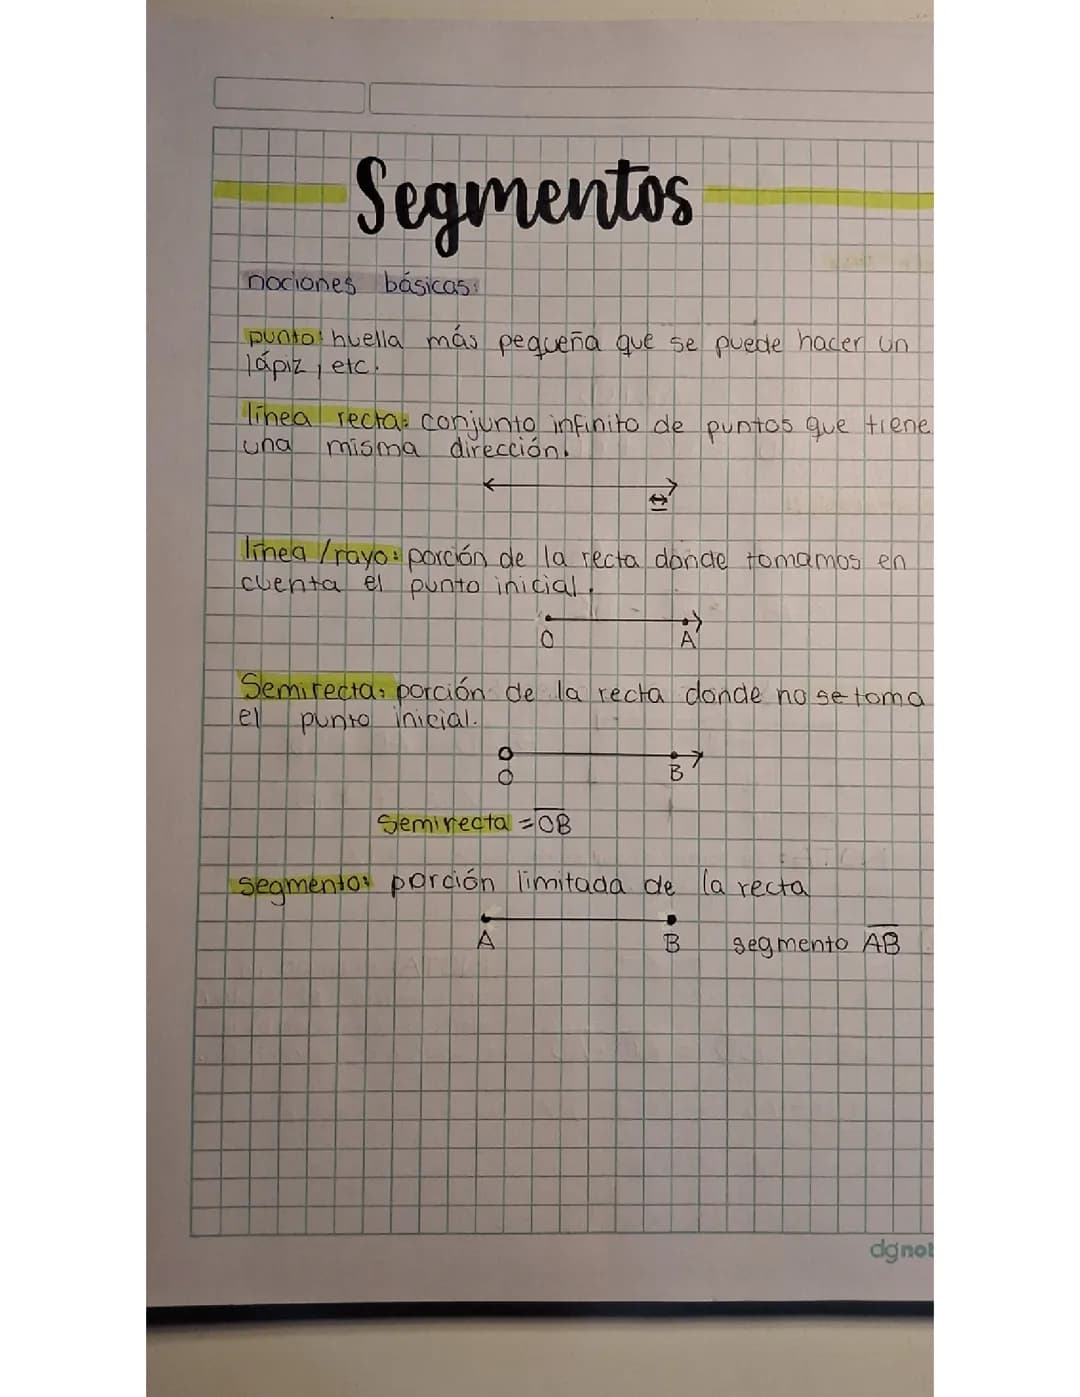 Segmentos
nociones básicas:
punto: huella más pequeña que se puede hacer un
lápiz, etc.
línea recta: conjunto infinito de puntos que tiene
una misma dirección.
línea/rayo: porción de la recta donde tomamos en
cuenta el punto inicial.
O A
Semirecta: porción de la recta donde no se toma
el punto inicial.
O B
Semirecta = OB
segmento: porción limitada de la recta
A B segmento AB
dgnot